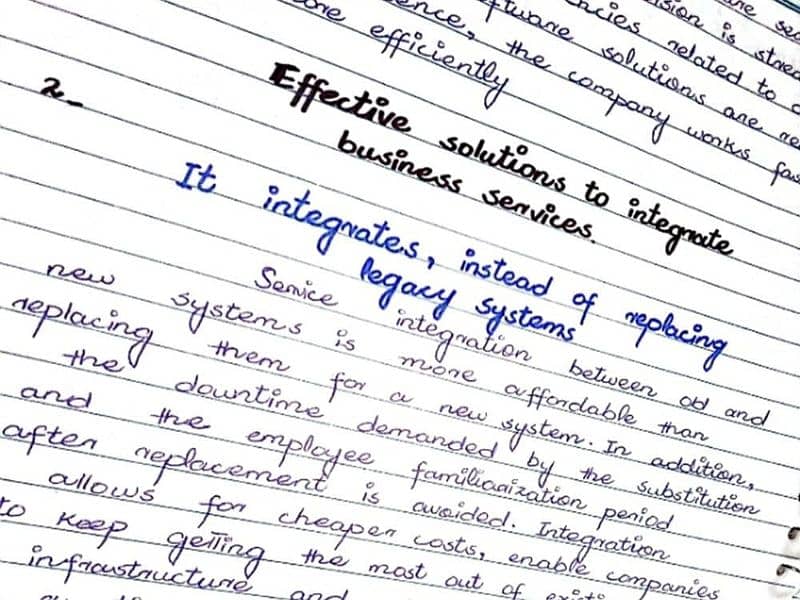 sion is stored
ncies related to
ence, software solutions are re
more efficiently the company works fas
2_
Effective solutions to integrate
business services.
It integrates, instead of replacing
legacy systems
Service integration between old and
new systems is more affordable than
replacing them for a new system. In addition,
the downtime demanded by the substitution
and the employee familiarization period
after replacement is avoided. Integration
allows for cheaper costs, enable companies
to keep getting the most out of
infrastructure and